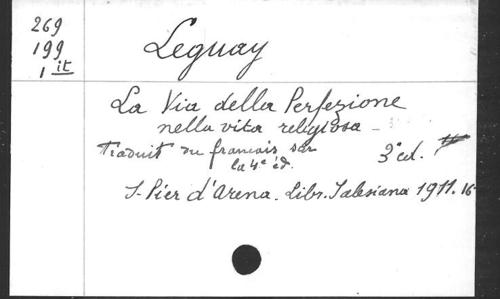 269
199
1 it
Leguay
La Via della Perfezione
nella vita religiosa
Traduit du français sur
la 4e éd.
3e ed.
S. Pier d'Arena. Libr. Salesiana 1911. 16